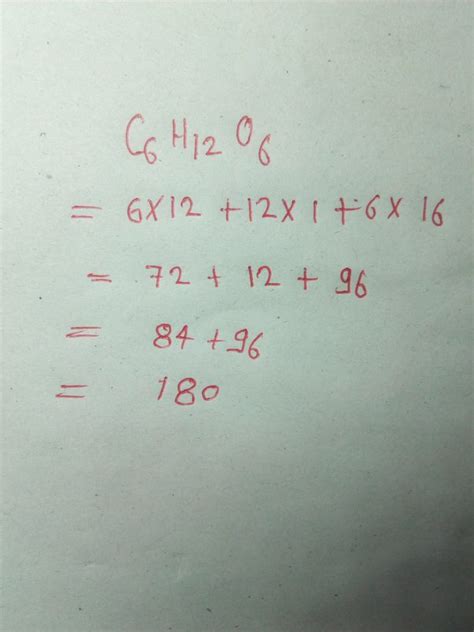 C₆H₁₂O₆
= 6×12 +12×1+6×16
= 72 + 12 + 96
= 84+96
= 180